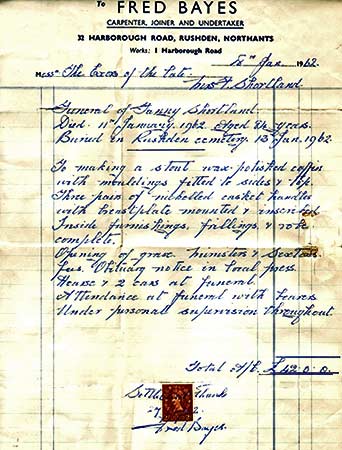 To FRED BAYES
CARPENTER, JOINER AND UNDERTAKER
32 HARBOROUGH ROAD, RUSHDEN, NORTHANTS
Works: 1 Harborough Road
Jan 1962
Messrs The Exors of the Late
Miss F Shortland
Funeral of Fanny Shortland.
Died 11th January 1962 aged years.
Buried in Rushden cemetery 13 Jan. 1962
To making a stout wax polished coffin
with mouldings fitted to sides & top.
Three pair of nickelled casket handles
with breastplate mounted & inscribed
Inside furnishings, frillings & robe
complete.
Opening of grave ministers & Sextons
fees. Obituary notice in local press
Hearse & 2 cars at funeral.
Attendance at funeral with bearers
Under personal supervision throughout.
Total £42.0.0.
Settled Thanks
Fred Bayes